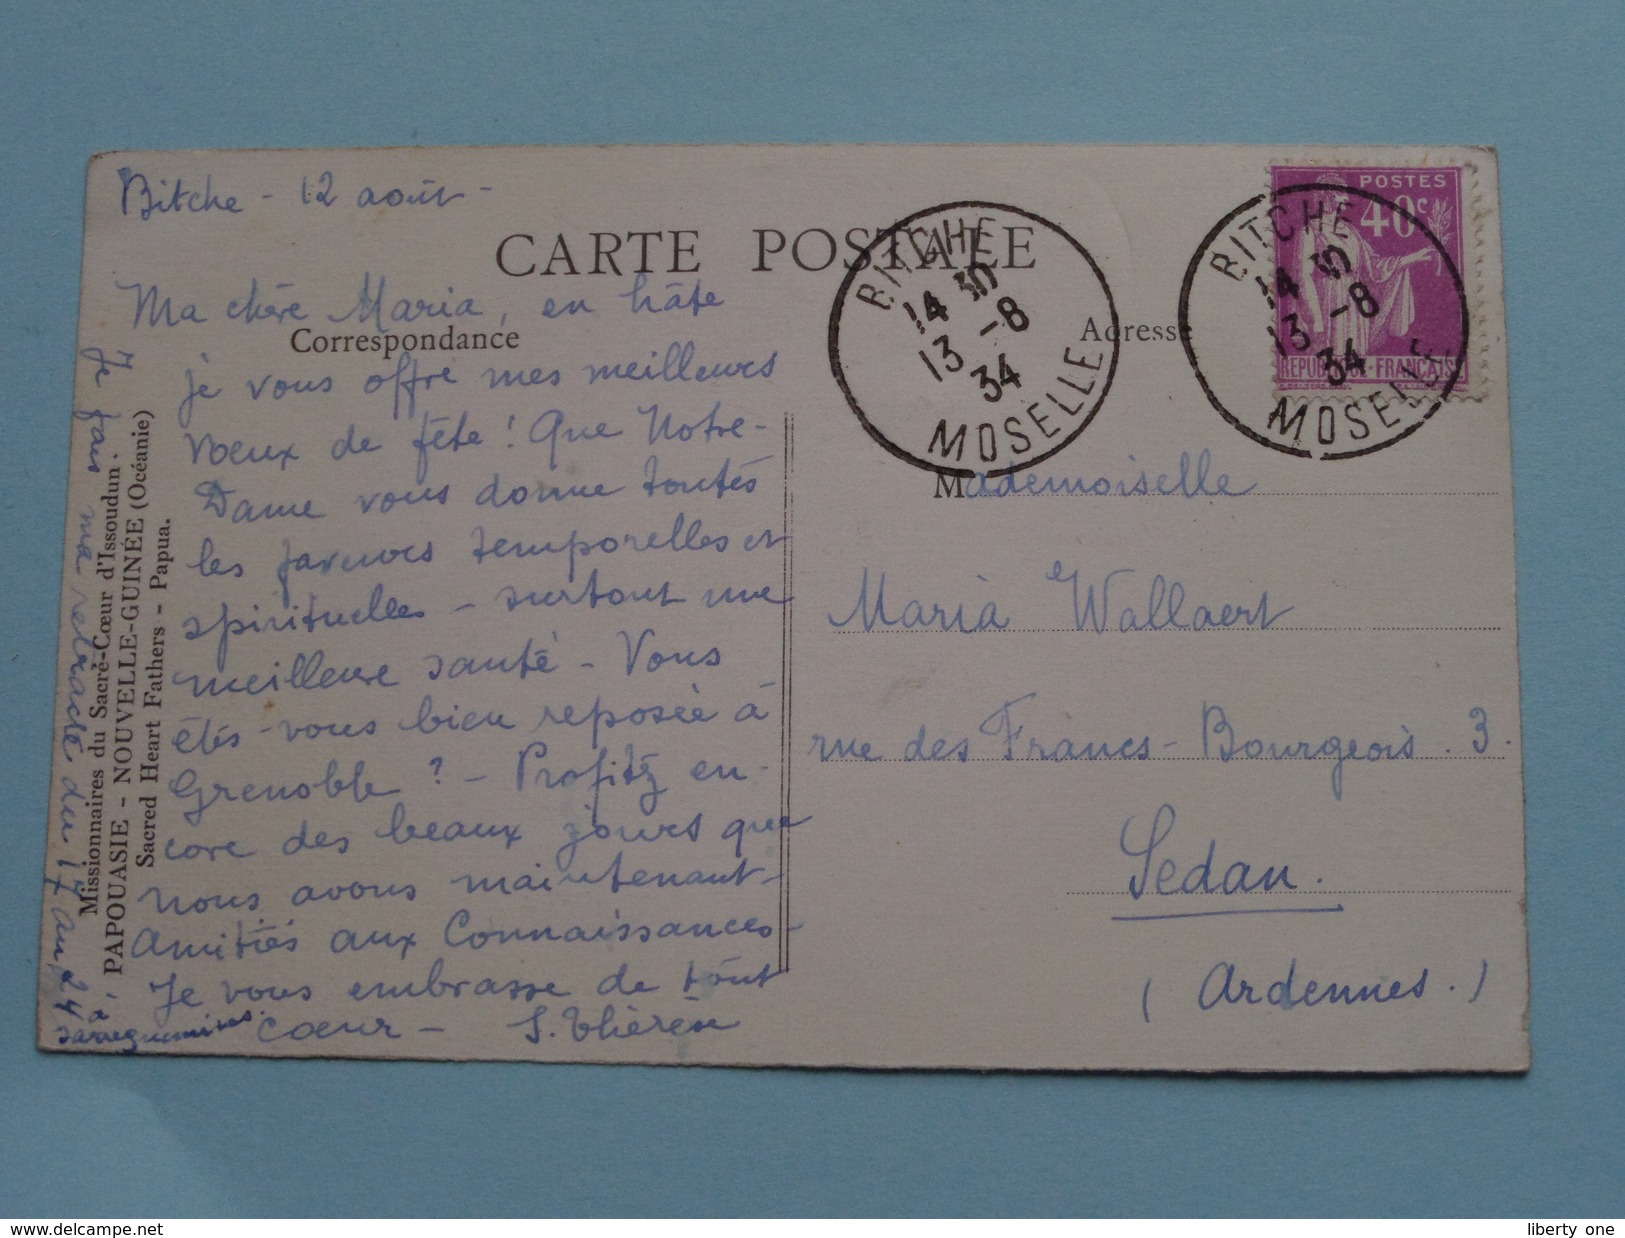 Bitche - 12 août -
CARTE POSTALE
Ma chère Maria, en hâte
Correspondance
je vous offre mes meilleurs
vœux de fête ! Que Notre-
Dame vous donne toutes
les faveurs temporelles et
spirituelles - surtout une
meilleure santé - Vous
êtes-vous bien reposée à
Grenoble ? - Profitez en-
core des beaux jours que
nous avons maintenant -
Amitiés aux Connaissances -
Je vous embrasse de tout
cœur - S. Thérèse
Je fais ma retraite du 17 au 24
à
Sarreguemines.
Missionnaires du Sacré-Cœur d'Issoudun.
PAPOUASIE - NOUVELLE-GUINÉE (Océanie)
Sacred Heart Fathers - Papua.
BITCHE
14 30
13 -8
34
MOSELLE
Adresse
POSTES
40c
REPUBLIQUE FRANÇAISE
BITCHE
14 30
13 -8
34
MOSELLE
Mademoiselle
Maria Wallaert
rue des Francs-Bourgeois. 3.
Sedan.
(Ardennes.)
delcampe.net
liberty one